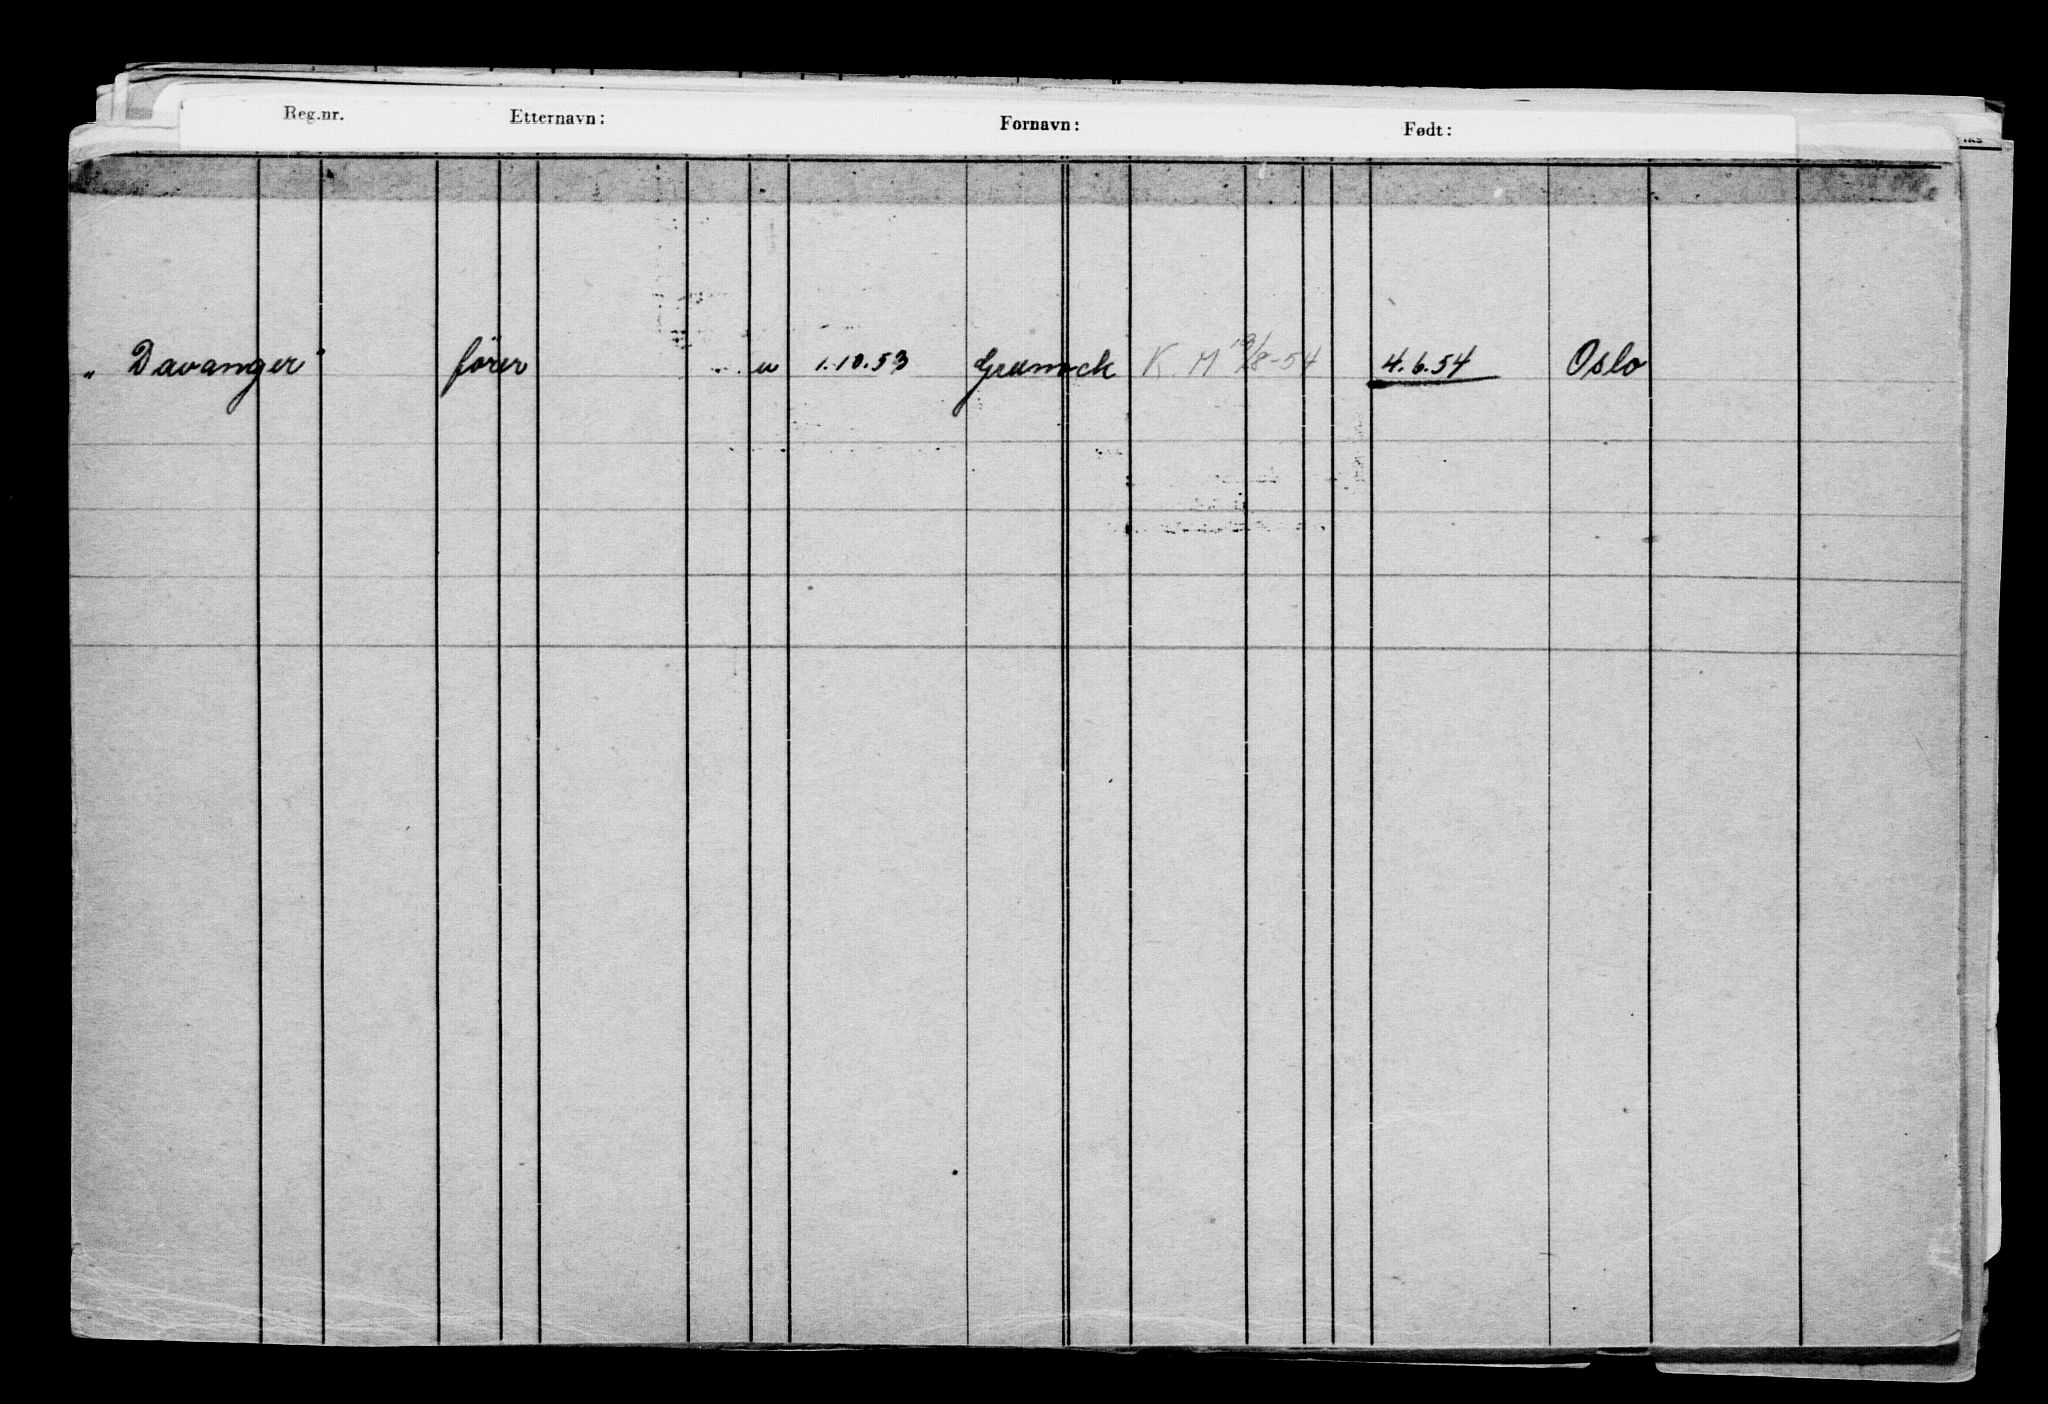 Reg.nr. Etternavn: Fornavn: Født:
„ Davanger" fører u 1.10.53 Greenock K. M 19/8-54 4.6.54 Oslo